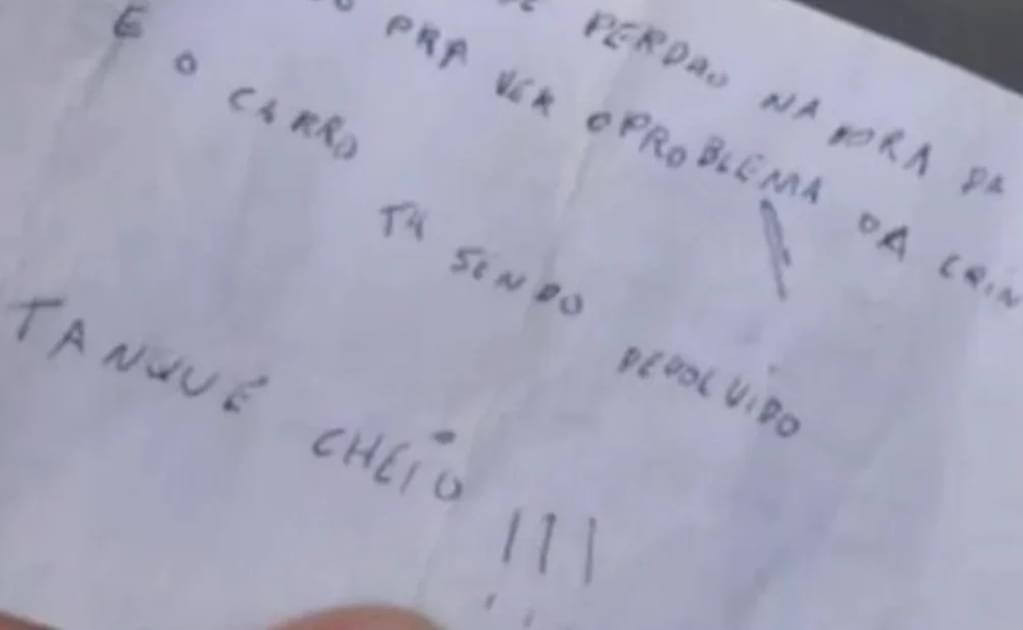 PERDAO NA HORA DA
PRA VER O PROBLEMA DA
E O CARRO TA SENDO DEVOLVIDO
TANQUE CHEIO !!!